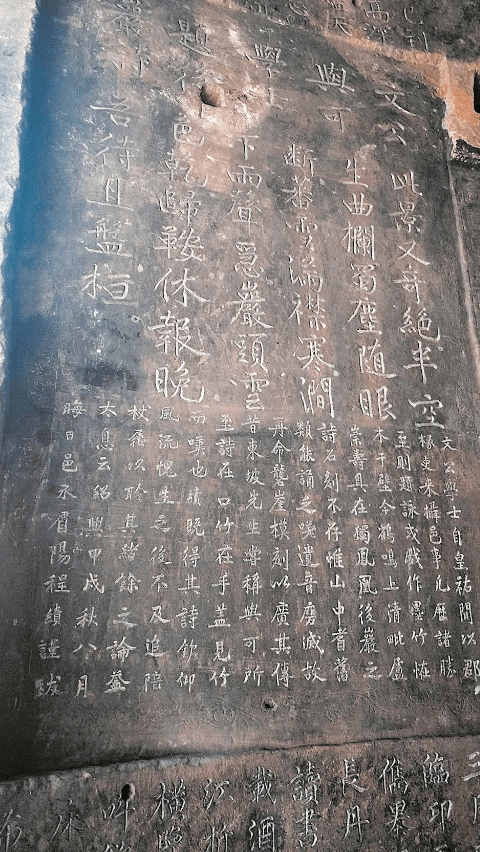 文公
與可
學士
題後
巖詩
此景又奇絕半空
生曲欄蜀塵隨眼
斷蕃雪滿襟寒澗
下雨聲急巖頭雲
色乾歸鞍休報晚
吾待且盤桓
文公學士自皇祐間以郡
椽吏来攝邑事凡歷諸勝
至則題詠或戲作墨竹恠
木于壁今鶴鳴上清毗盧
崇壽具在獨鳳凰後巖之
詩石刻不存惟山中耆舊
類能誦之嘆遺音磨滅故
再命礱崖模刻以廣其傳
昔東坡先生嘗稱與可所
至詩在口竹在手蓋見竹
而嘆也績晚得其詩欽仰
風流愧生之後不及追陪
杖屨以聆其緒餘之論益
太息云紹興甲戌秋八月
晦日邑丞眉陽程績謹跋
臨卭
長丹
讀書
載酒